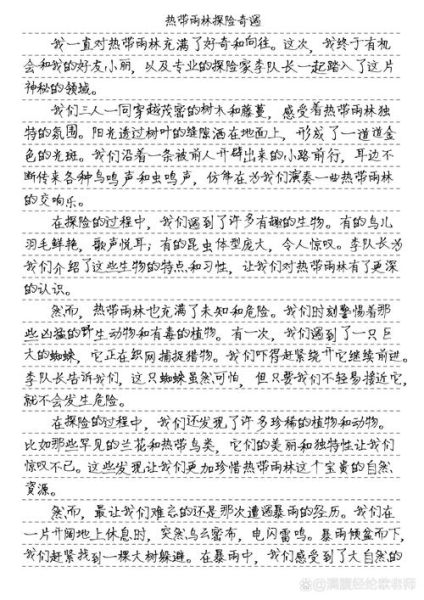 热带雨林探险奇遇
我一直对热带雨林充满了好奇和向往。这次，我终于有机
会和我的好友小丽，以及专业的探险家李队长一起踏入了这片
神秘的领域。
我们三人一同穿越茂密的树木和藤蔓，感受着热带雨林独
特的氛围。阳光透过树叶的缝隙洒在地面上，形成了一道道金
色的光斑。我们沿着一条被前人开辟出来的小路前行，耳边不
断传来各种鸟鸣声和虫鸣声，仿佛在为我们演奏一曲热带雨林
的交响乐。
在探险的过程中，我们遇到了许多有趣的生物。有的鸟儿
羽毛鲜艳，歌声悦耳；有的昆虫体型庞大，令人惊叹。李队长为
我们介绍了这些生物的特点和习性，让我们对热带雨林有了更深
的认识。
然而，热带雨林也充满了未知和危险。我们时刻警惕着那
些凶猛的野生动物和有毒的植物。有一次，我们遇到了一只巨
大的蜘蛛，它正在织网捕捉猎物。我们吓得赶紧绕开它继续前进。
李队长告诉我们，这只蜘蛛虽然可怕，但只要我们不轻易接近它，
就不会发生危险。
在探险的过程中，我们还发现了许多珍稀的植物和动物。
比如那些罕见的兰花和热带鸟类，它们的美丽和独特性让我们
惊叹不已。这些发现让我们更加珍惜热带雨林这个宝贵的自然
资源。
然而，最让我们难忘的还是那次遭遇暴雨的经历。我们在
一片开阔地上休息时，突然乌云密布，电闪雷鸣。暴雨倾盆而下，
我们赶紧找到一棵大树躲避。在暴雨中，我们感受到了大自然的
@满腹经纶歌老师